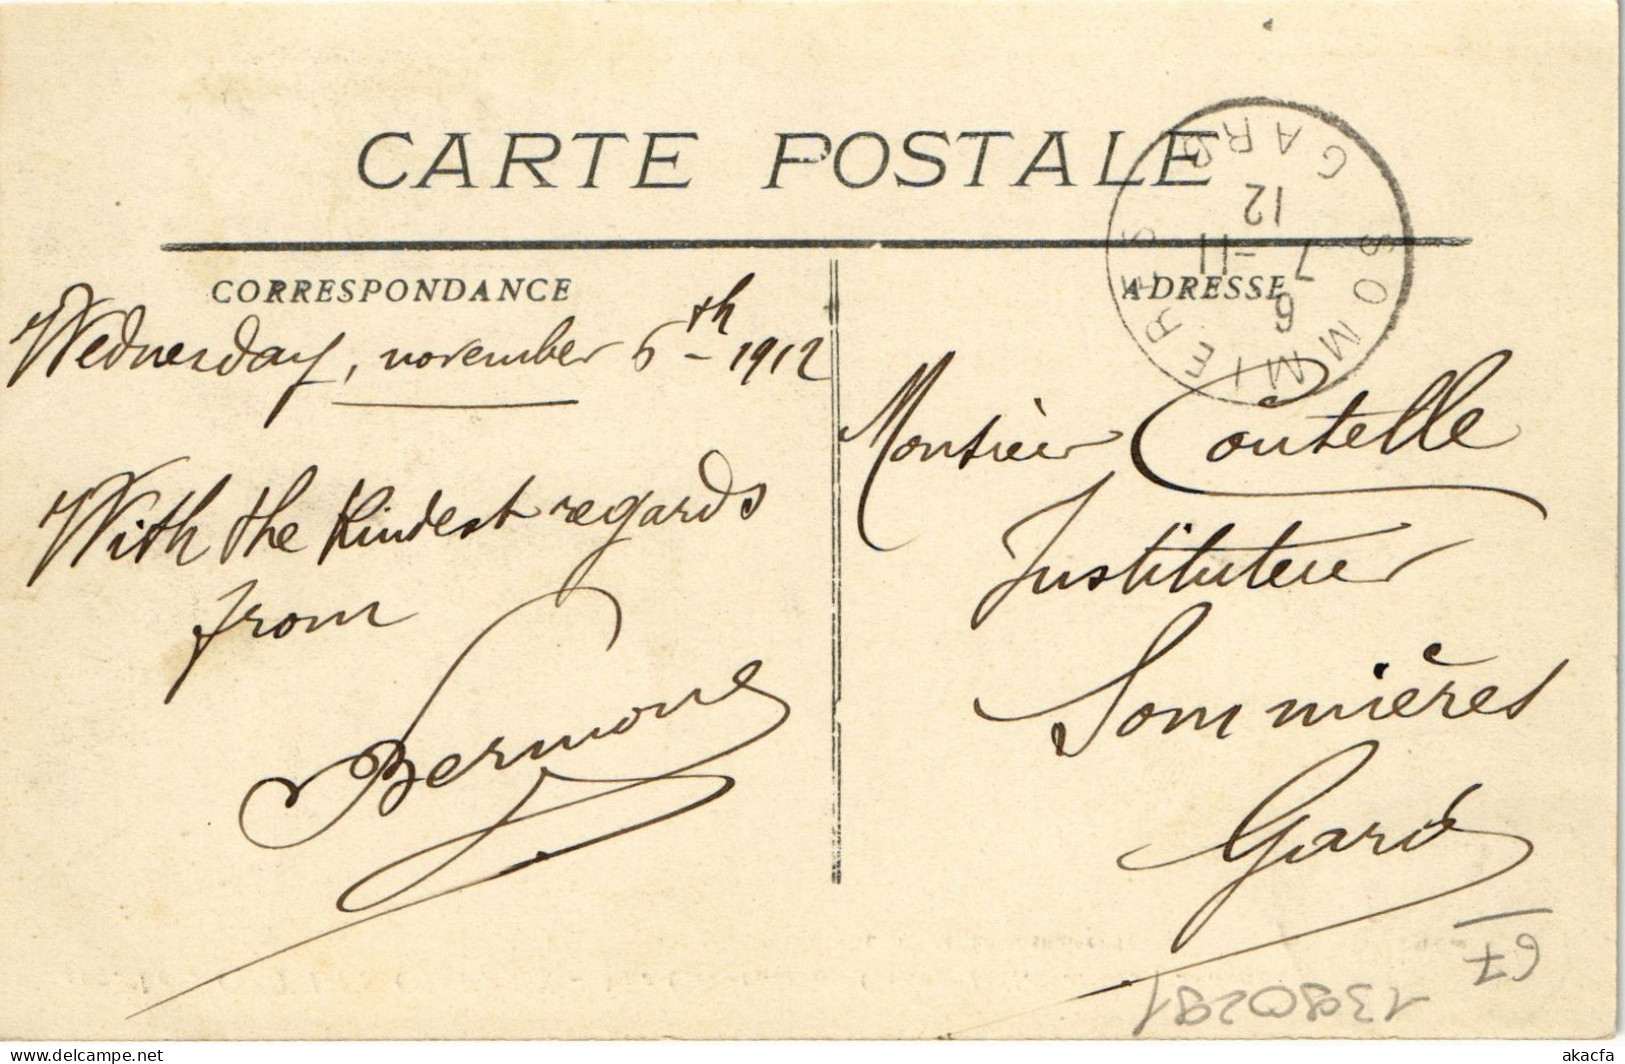 CARTE POSTALE
CORRESPONDANCE
ADRESSE
SOMMIERES
GARD
6
7 -11
12
Wednesday, november 6th 1912
With the kindest regards
from
Bermond
Monsieur Coutelle
Instituteur
Sommières
Gard
67
1380291
akacfa